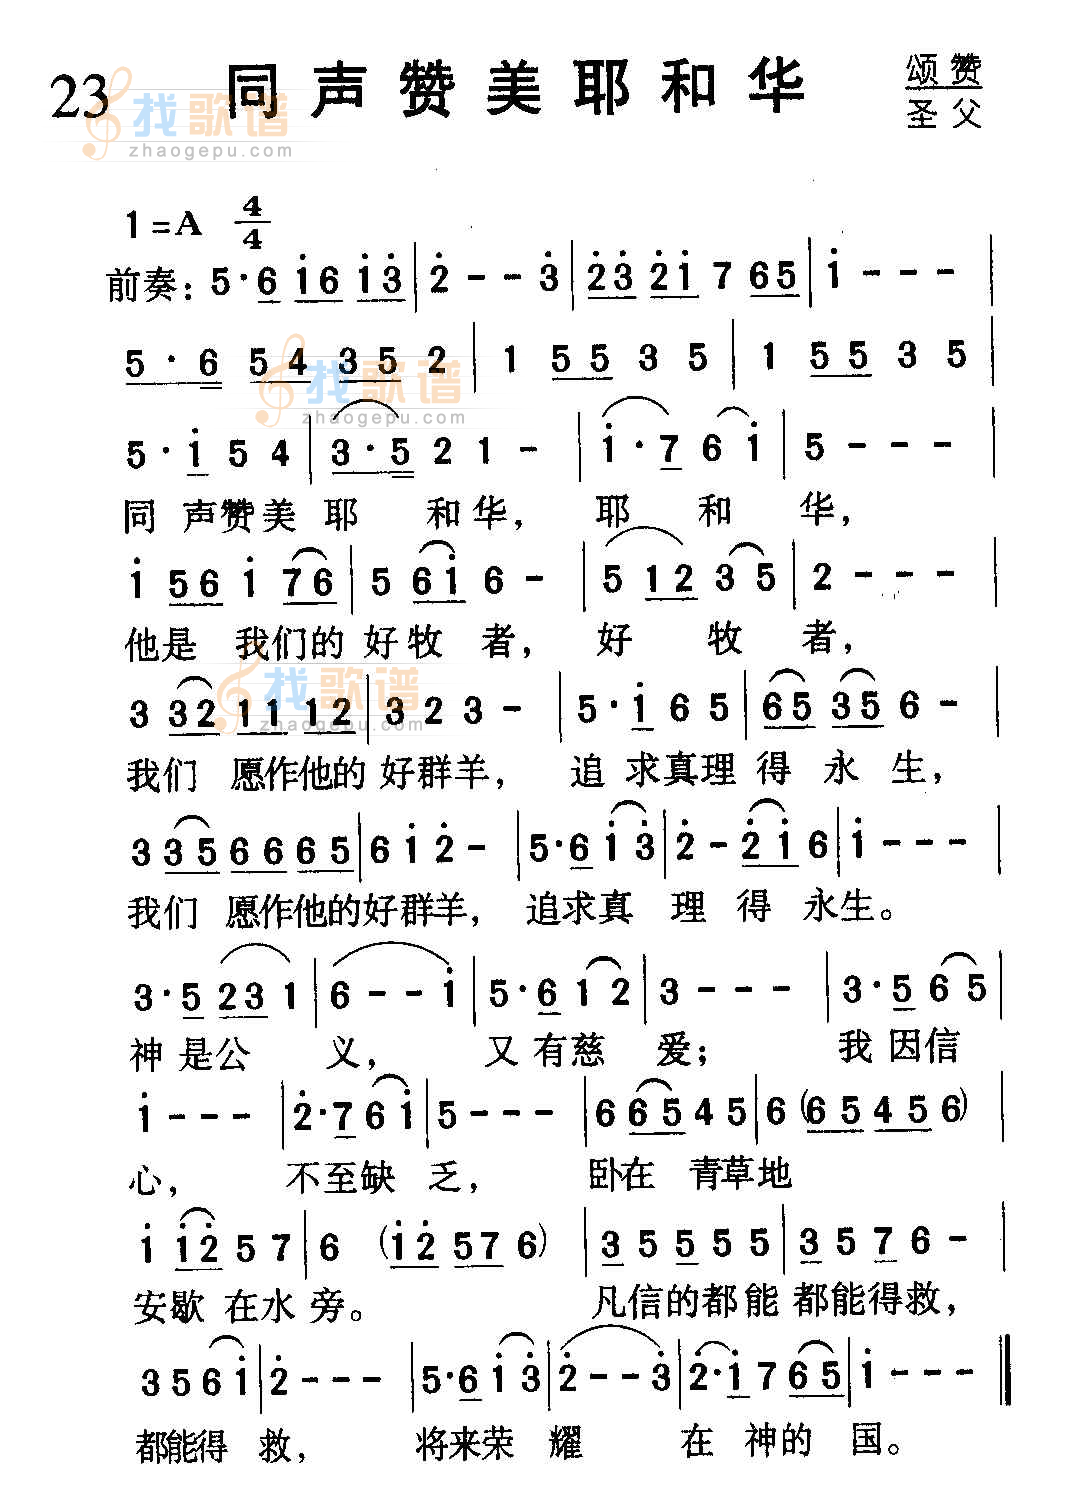 23 同声赞美耶和华 颂赞
圣父
找歌谱
zhaogepu.com
1=A 4/4
前奏: 5·6 i6 i3 | 2 - - 3 | 23 2i 7 65 | i - - - |
5·6 54 35 2 | 1 55 3 5 | 1 55 3 5
找歌谱
zhaogepu.com
5·i 5 4 | 3·5 2 1 - | i·7 6 i | 5 - - - |
同声赞美耶 和华, 耶 和 华,
i 56 i 76 | 5 6i 6 - | 5 12 35 | 2 - - - |
他是 我们的好牧 者, 好 牧 者,
找歌谱
zhaogepu.com
3 32 11 12 | 3 2 3 - | 5·i 6 5 | 65 35 6 - |
我们 愿作他的好群羊, 追求真理得永生,
3 35 66 65 | 6 i 2 - | 5·6 i 3 | 2 - 2i 6 | i - - - |
我们 愿作他的好群羊, 追求真 理 得 永生。
3·5 23 1 | 6 - - i | 5·6 1 2 | 3 - - - | 3·5 6 5 |
神是公 义, 又有慈 爱; 我因信
i - - - | 2·7 6 i | 5 - - - | 6 65 4 5 | 6 (65 45 6) |
心, 不至缺 乏, 卧在 青草地
i i2 5 7 | 6 (i2 57 6) | 3 5 5 5 5 | 3 5 7 6 - |
安歇 在水 旁。 凡信的都能 都能得救,
3 5 6 i | 2 - - - | 5·6 i 3 | 2 - - 3 | 2·i 7 65 | i - - - ‖
都能得 救, 将来荣 耀 在 神的 国。